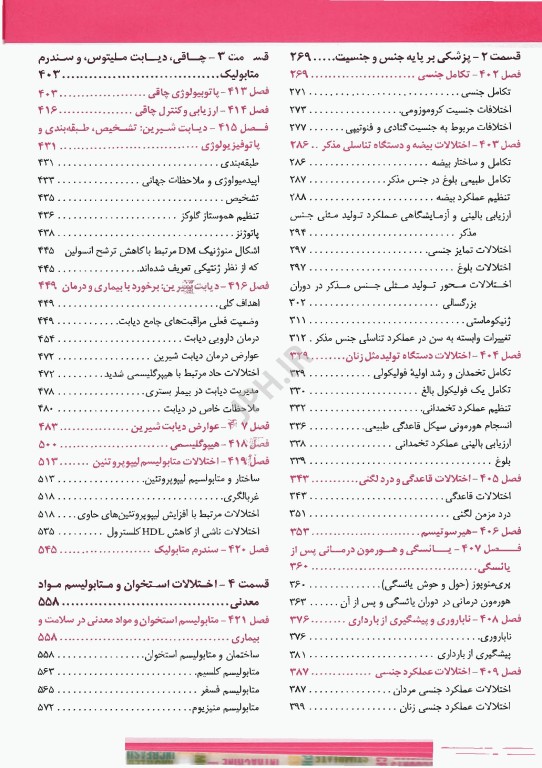 قسمت ۲ - پزشکی بر پایه جنس و جنسیت..... ۲۶۹
فصل ۴۰۲ - تکامل جنسی ........................ ۲۶۹
تکامل جنسی ............................... ۲۷۱
اختلافات جنسیت کروموزومی................ ۲۷۳
اختلافات مربوط به جنسیت گنادی و فنوتیپی ........ ۲۷۷
فصل ۴۰۳ - اختلالات بیضه و دستگاه تناسلی مذکر .. ۲۸۶
تکامل و ساختار بیضه ........................ ۲۸۶
تکامل طبیعی بلوغ در جنس مذکر............. ۲۸۷
تنظیم عملکرد بیضه ........................ ۲۸۸
ارزیابی بالینی و آزمایشگاهی عملکرد تولید مثلی جنس
مذکر ................................. ۲۹۴
اختلالات تمایز جنسی....................... ۲۹۷
اختلالات بلوغ ............................ ۲۹۷
اختلالات محور تولید مثلی جنس مذکر در دوران
بزرگسالی ............................. ۳۰۲
ژنیکوماستی............................... ۳۱۱
تغییرات وابسته به سن در عملکرد تناسلی جنس مذکر . ۳۱۲
فصل ۴۰۴ - اختلالات دستگاه تولیدمثل زنان........ ۳۲۹
تکامل تخمدان و رشد اولیهٔ فولیکولی .......... ۳۲۹
تکامل یک فولیکول بالغ .................... ۳۳۰
تنظیم عملکرد تخمدانی..................... ۳۳۲
انسجام هورمونی سیکل قاعدگی طبیعی......... ۳۳۶
ارزیابی بالینی عملکرد تخمدانی ............... ۳۳۸
بلوغ .................................... ۳۳۹
فصل ۴۰۵ - اختلالات قاعدگی و درد لگنی........... ۳۴۳
اختلالات قاعدگی.......................... ۳۴۳
درد مزمن لگنی ........................... ۳۵۱
فصل ۴۰۶ - هیرسوتیسم......................... ۳۵۳
فصل ۴۰۷ - یائسگی و هورمون درمانی پس از
یائسگی.................................... ۳۶۰
پری‌منوپوز (حول و حوش یائسگی)............. ۳۶۰
هورمون درمانی در دوران یائسگی و پس از آن ...... ۳۶۳
فصل ۴۰۸ - ناباروری و پیشگیری از بارداری ........ ۳۷۶
ناباروری................................. ۳۷۶
پیشگیری از بارداری ........................ ۳۸۱
فصل ۴۰۹ - اختلالات عملکرد جنسی .............. ۳۸۷
اختلالات عملکرد جنسی مردان ............... ۳۸۷
اختلالات عملکرد جنسی زنان ................. ۳۹۹
قسمت ۳ - چاقی، دیابت ملیتوس، و سندرم
متابولیک................................ ۴۰۳
فصل ۴۱۳ - پاتوبیولوژی چاقی .................. ۴۰۳
فصل ۴۱۴ - ارزیابی و کنترل چاقی ............... ۴۱۶
فصل ۴۱۵ - دیابت شیرین: تشخیص، طبقه‌بندی و
پاتوفیزیولوژی ............................. ۴۳۱
طبقه‌بندی ................................ ۴۳۱
اپیدمیولوژی و ملاحظات جهانی .............. ۴۳۳
تشخیص ................................. ۴۳۵
تنظیم هموستاز گلوکز ....................... ۴۳۶
پاتوژنز ................................... ۴۳۸
اشکال منوژنیک DM مرتبط با کاهش ترشح انسولین ۴۴۵
که از نظر ژنتیکی تعریف شده‌اند................ ۴۴۵
فصل ۴۱۶ - دیابت شیرین: برخورد با بیماری و درمان ۴۴۹
اهداف کلی............................... ۴۴۹
وضعیت فعلی مراقبت‌های جامع دیابت........... ۴۴۹
درمان دارویی دیابت ....................... ۴۵۴
عوارض درمان دیابت شیرین ................. ۴۷۲
اختلالات حاد مرتبط با هیپرگلیسمی شدید......... ۴۷۲
مدیریت دیابت در بیمار بستری................ ۴۷۸
ملاحظات خاص در دیابت ................... ۴۸۰
فصل ۴۱۷ - عوارض دیابت شیرین ................ ۴۸۳
فصل ۴۱۸ - هیپوگلیسمی ...................... ۵۰۰
فصل ۴۱۹ - اختلالات متابولیسم لیپوپروتئین ....... ۵۱۳
ساختار و متابولیسم لیپوپروتئین............... ۵۱۳
غربالگری................................ ۵۱۸
اختلالات مرتبط با افزایش لیپوپروتئین‌های حاوی.... ۵۱۸
اختلالات ناشی از کاهش HDL کلسترول ......... ۵۳۵
فصل ۴۲۰ - سندرم متابولیک .................... ۵۴۵
قسمت ۴ - اختلالات استخوان و متابولیسم مواد
معدنی.................................. ۵۵۸
فصل ۴۲۱ - متابولیسم استخوان و مواد معدنی در سلامت و
بیماری ................................... ۵۵۸
ساختمان و متابولیسم استخوان................ ۵۵۸
متابولیسم کلسیم.......................... ۵۶۳
متابولیسم فسفر ........................... ۵۶۵
متابولیسم منیزیوم......................... ۵۷۲